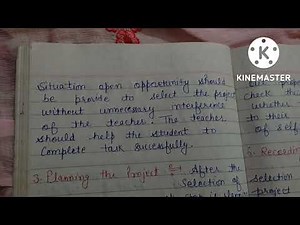 KINEMASTER
Situation open opportunity should
be provide to select the project
without unnecessary interference
of the teacher. The teacher
should help the student to
Complete task sucessfully.
3. Planning the Project After the
Selection of
check the
whether
to their
of self
selection
project